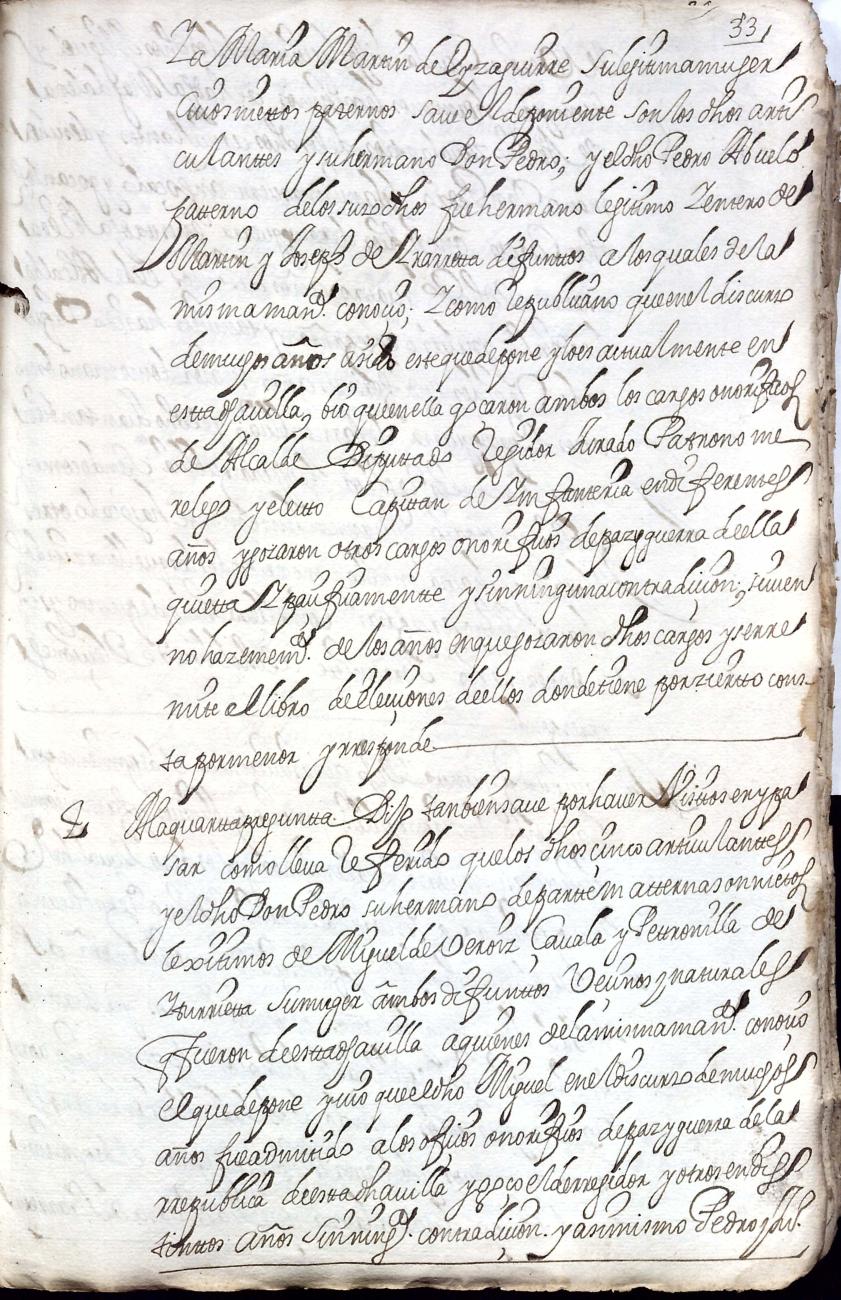 33
Za María Martín de Eyzaguirre su legitima muger
Cuios niettos paternos saue el deponiente son los dhos arti
culanttes y su hermano Don Pedro; y el dho Pedro Abuelo
patterno de los suso dhos fue hermano legitimo Zentero de
Martin y Joseph de Yrarretta defuntos a los quales de la
misma man.ª conoçio; Z como rrepublicano que en el discurso
de muchos años a sido este que depone y lo es actualmente en
estta dha villa, bio que en ella goçaron ambos los cargos onorificos
de Alcalde Diputtado Regidor Jurado Patrono me
relego y eletto Capitan de Ynfanteria en diferentes
años y goçaron otros cargos onorificos de paz y guerra de ella
quietta Z pacificamentte y sin ninguna contradicion; si uien
no haze mem.ª de los años en que goçaron dhos cargos y se rre
mite al libro de eleciones de ellos donde tiene por zierto cons
ta por menor y rresponde
4 A la quarta pregunta Dijo tanbien saue por hauer Vistos en y pa
sar como lleua Referido que los dhos cinco articulanttes
y el dho Don Pedro su hermano de partte matterna son niettos
lexitimos de Miguel de Veroiz Çauala y Pettronilla de
Yturrietta su muger ambos difunttos Vecinos y naturales
q fueron de estta dha villa a quienes de la misma man.ª conocio
el que depone y vio que el dho Miguel en el discurso de muchos
años fue admitido a los oficios onorificos de paz y guerra de la
rrepublica de esta dha villa y goço el de rregidor y otros en dis
tinttos años sin ning.ª contradicion. y asimismo Pedro